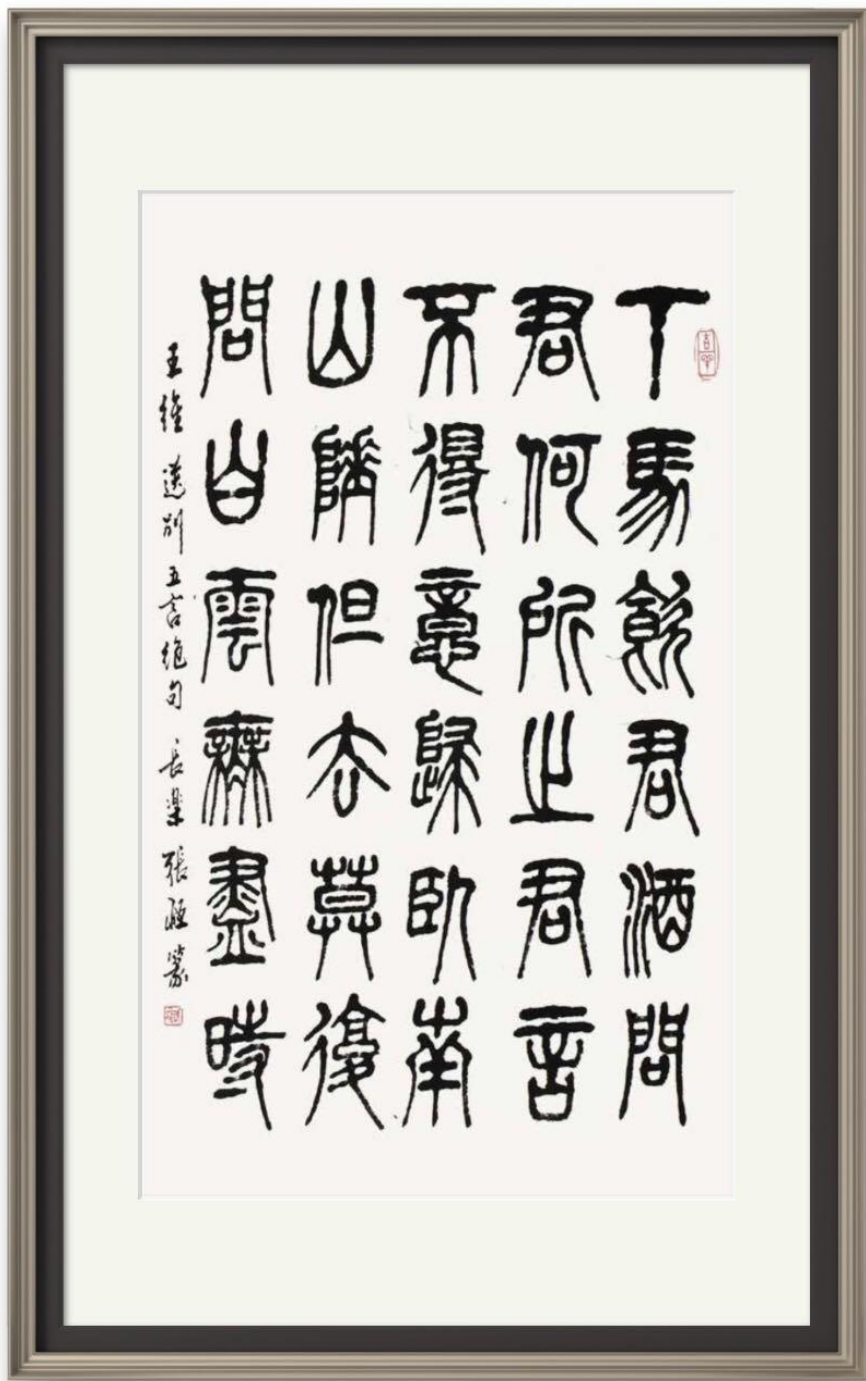 下馬飲君酒問
君何所之君言
不得意歸臥南
山陲但去莫復
問白雲無盡時
王維 送別 五言絕句 長樂 張 篆